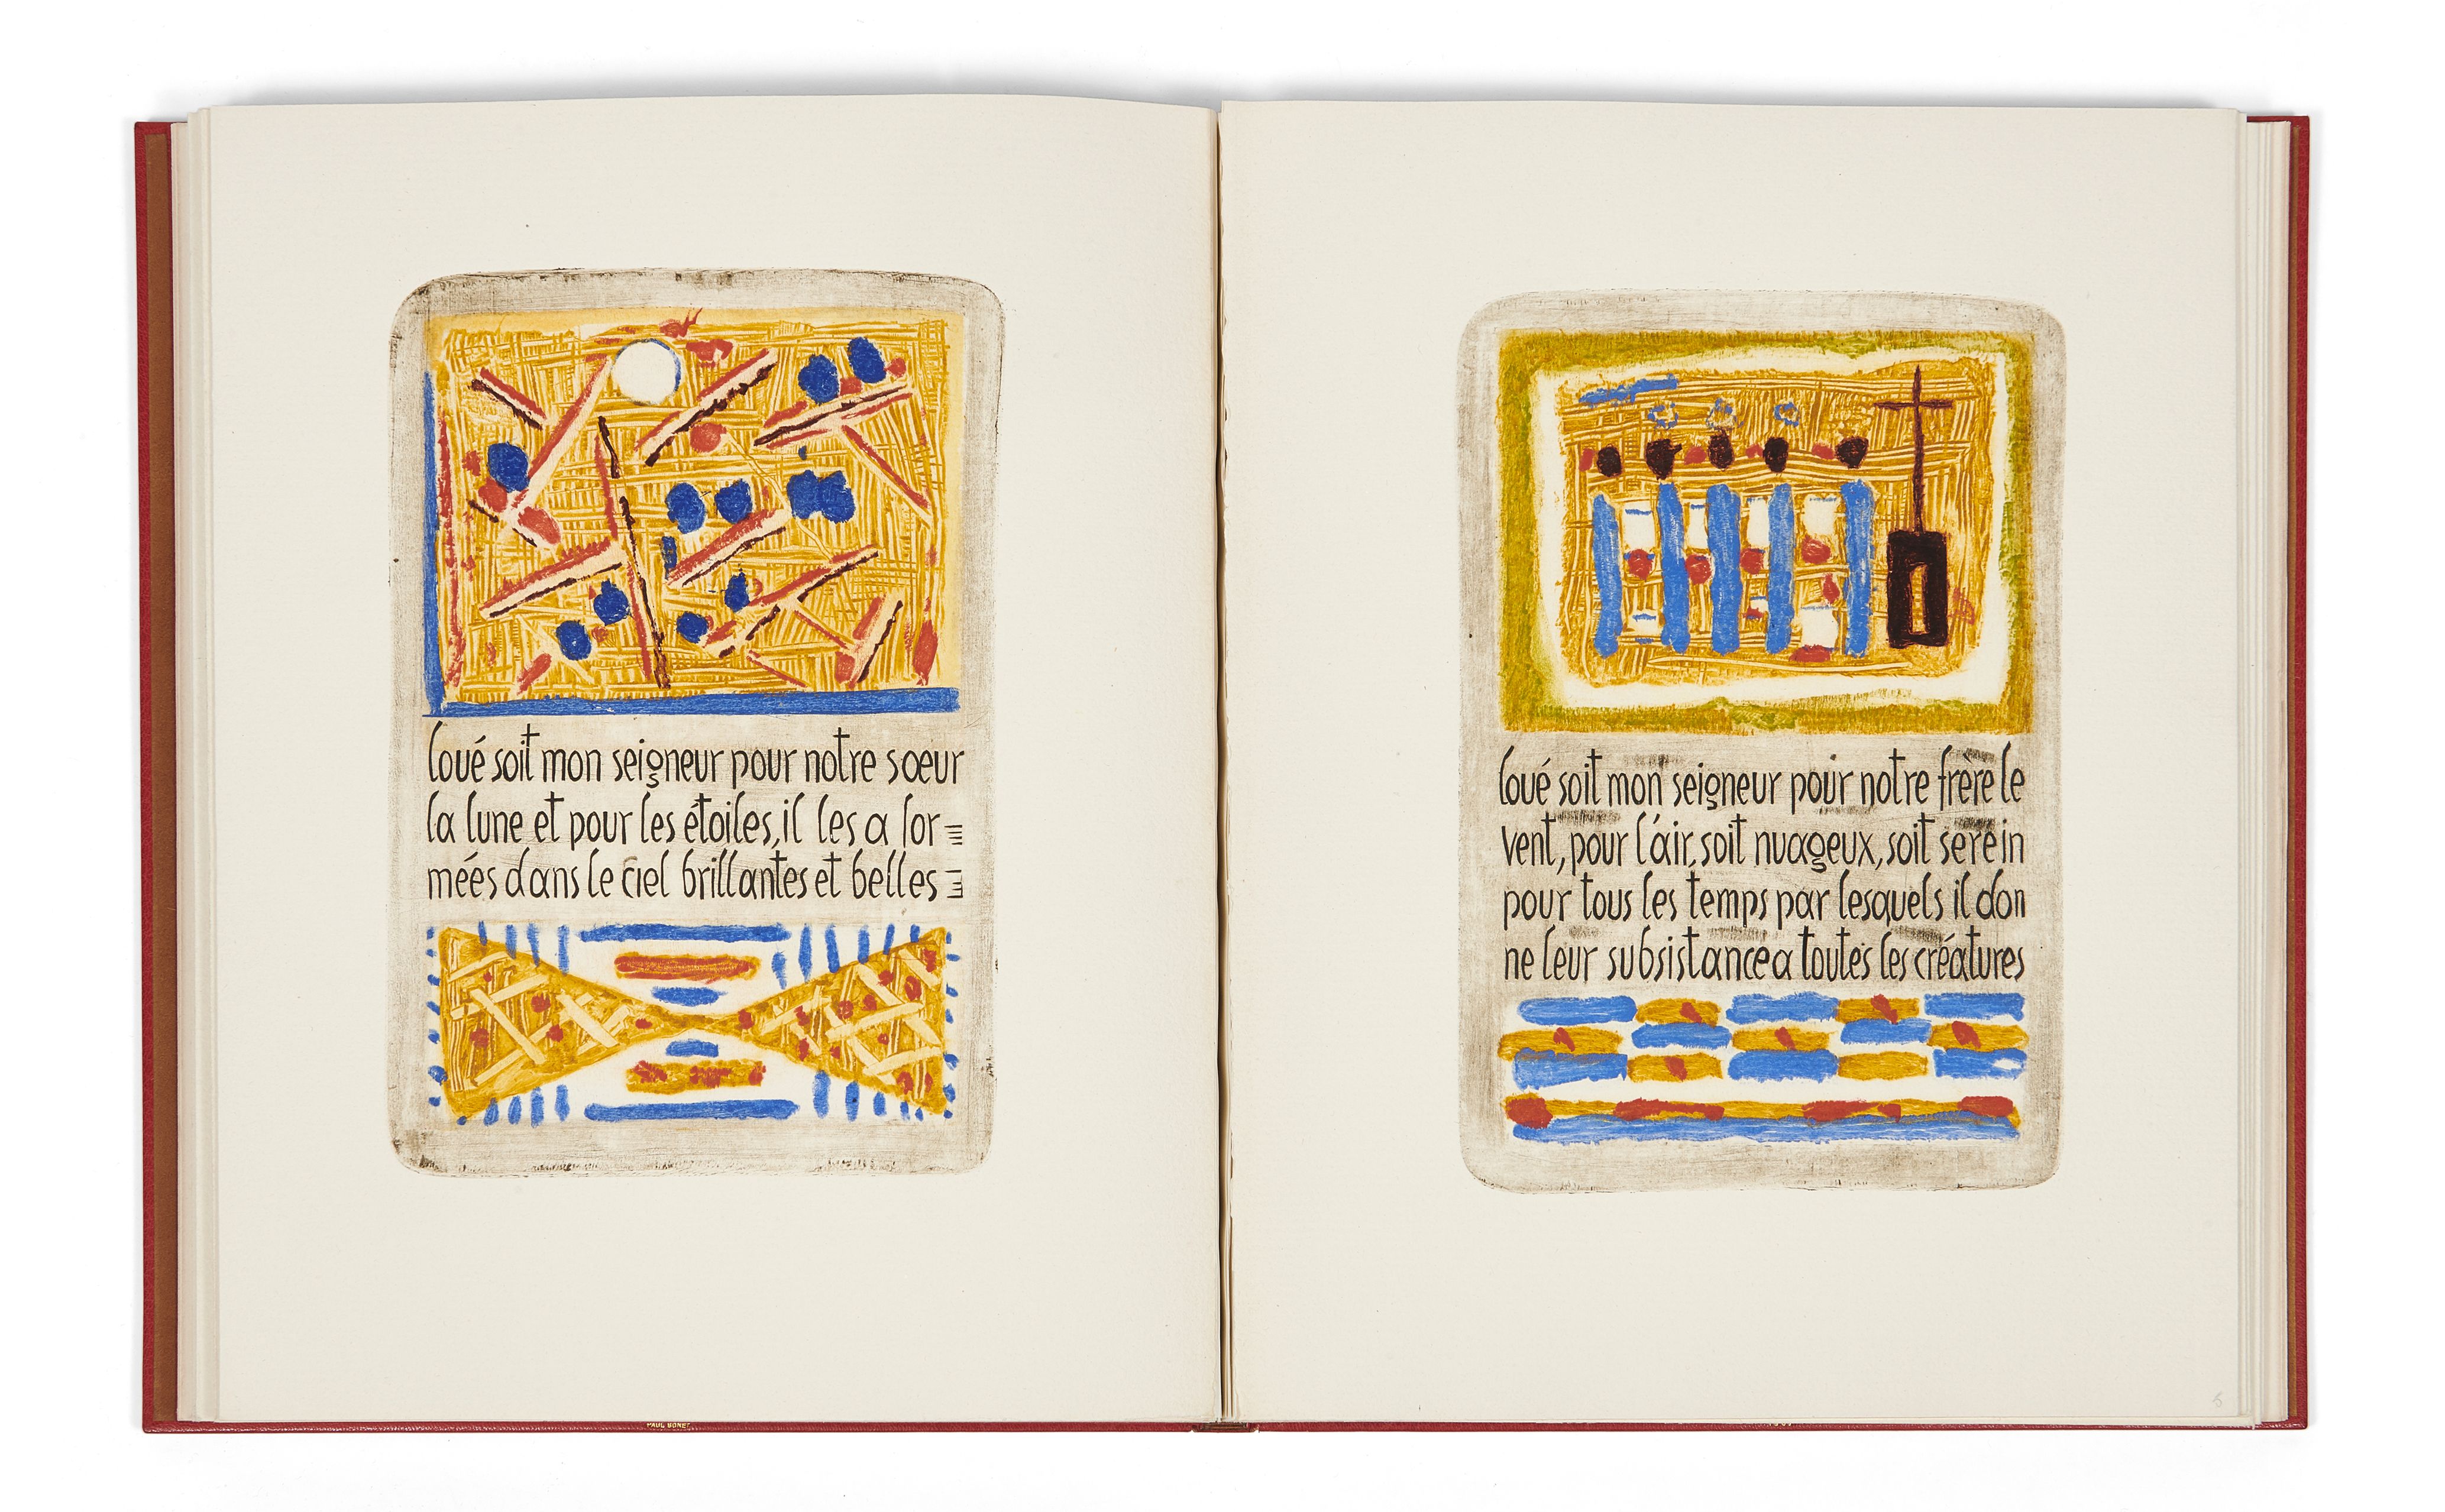 loué soit mon seigneur pour notre sœur
la lune et pour les étoiles, il les a for
mées dans le ciel brillantes et belles
loué soit mon seigneur pour notre frère le
vent, pour l'air, soit nuageux, soit serein
pour tous les temps par lesquels il don
ne leur subsistance a toutes les créatures
PAUL BONET